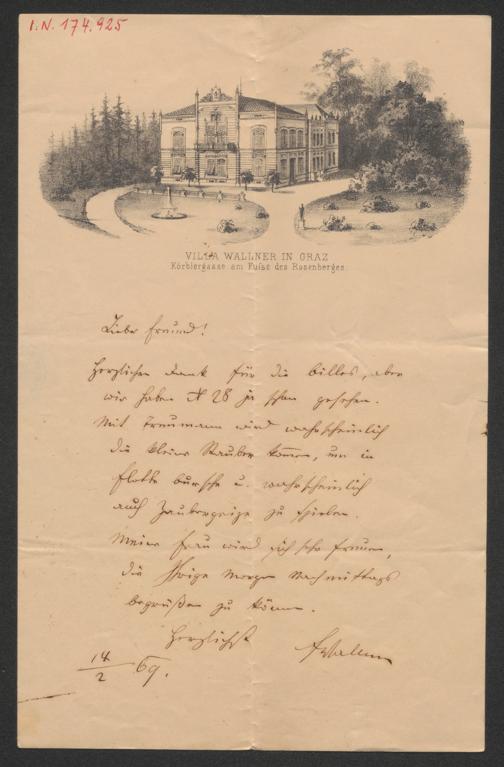 I.N. 174.925
VILLA WALLNER IN GRAZ
Körblergasse am Fuße des Rosenberges.
Lieber Freund!
Herzlichen Dank für die Billes, aber
wir haben № 28 ja schon gesehen.
Mit Freumann wird wahrscheinlich
die kleine Stauber kommen, um in
flotte Bursche u. wahrscheinlich
auch Zaubergeige zu spielen.
Meine Frau wird sich sehr freuen,
die Ihrige morgen Nachmittags
begrüßen zu können.
Herzlichst
FWallner
14/2 69.